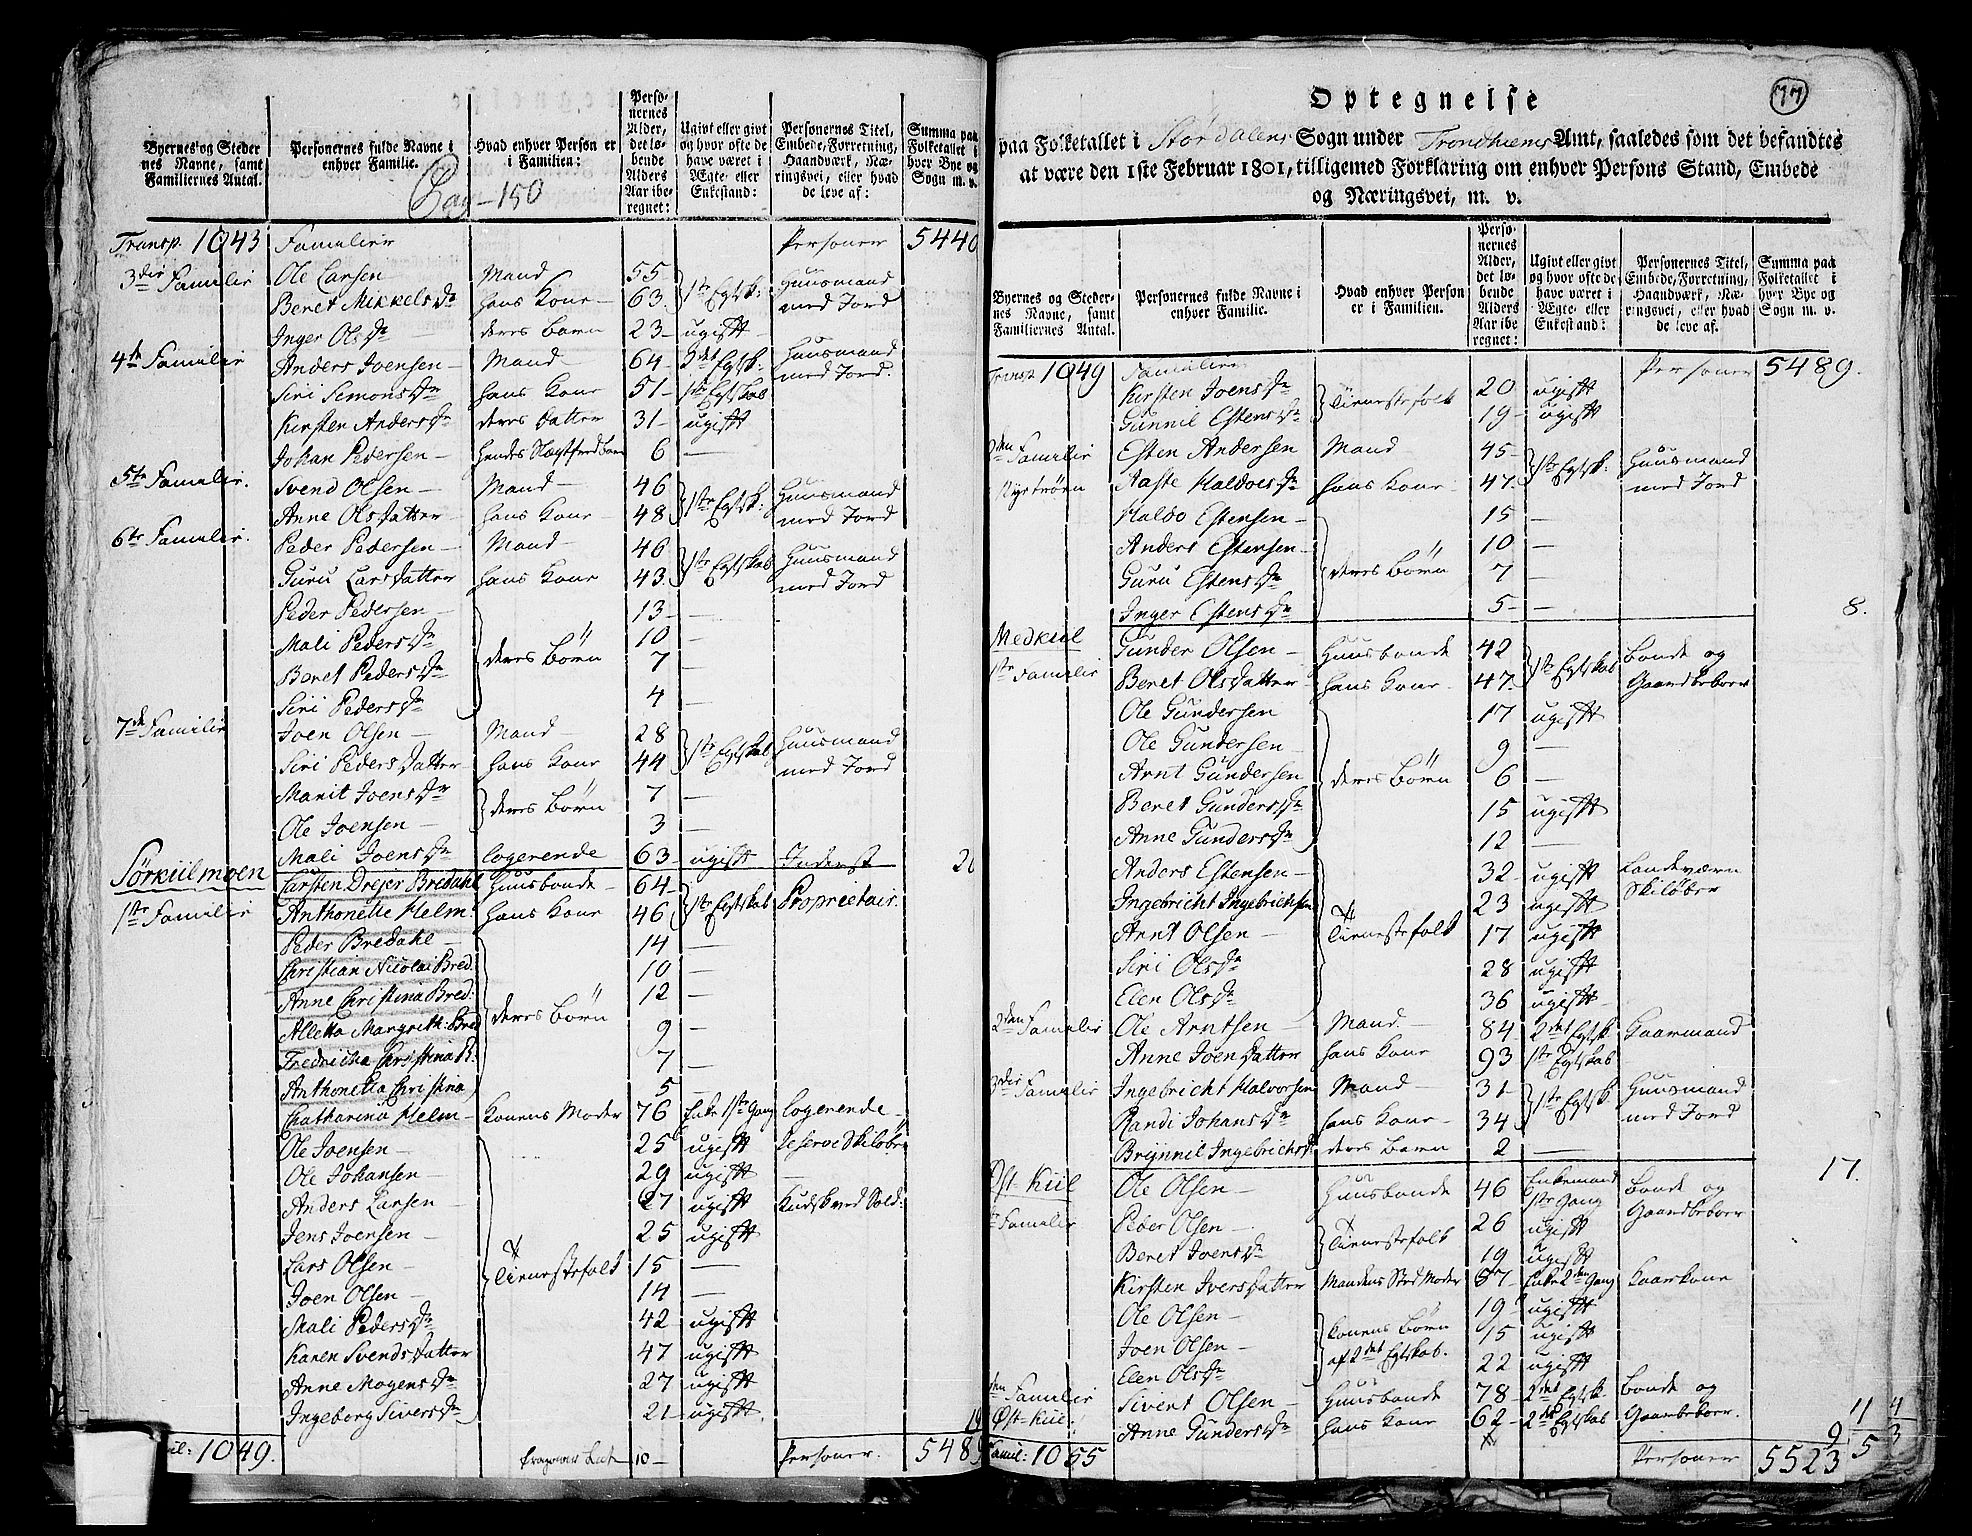 Byernes og Steder nes Navne, samt Familiernes Antal.
Personernes fulde Navne i enhver Familie.
Hvad enhver Person er i Familien:
Personernes Alder, det løbende Alders Aar iberegnet:
Ugivt eller givt og hvor ofte de have været i Ægte- eller Enkestand:
Personernes Titel, Embede, Forretning, Haandværk, Næringsvei, eller hvad de leve af:
Summa paa Folketallet i hver Bye og Sogn m. v.
Pag - 150
Transp. 1043 Familier Personer 5440
3die Familie Ole Larsen Mand 55 1ste Egtsk: Huusmand
Beret Mikkelsdr hans Kone 63 med Jord
Inger Olsdr deres Barn 23 ugift
4de Familie Anders Joensen Mand 64 3det Egtsk: Huusmand
Siri Simonsdr hans Kone 51 1ste Egtskab med Jord.
Kirsten Andersdr deres Datter 31 ugift
Johan Pedersen 6 —
5te Familie. Svend Olsen Mand 46 1ste Egtsk: Huusmand
Anne Olsdatter hans Kone 48 med Jord
6te Familie. Peder Pedersen Mand 46 1ste Egtskab Huusmand
Guru Larsdatter hans Kone 43 med Jord
Peder Pedersen 13 —
Mali Pedersdr 10 —
Beret Pedersdr deres Børn 7 —
Siri Pedersdr 4 —
7de Familie Joen Olsen Mand 28 1ste Egtskab Huusmand
Siri Pedersdatter hans Kone 44 med Jord
Marit Joensdr deres Børn 7 —
Ole Joensen 3 —
Mali Joensdr logerende 63 ugift Inderst
Sørkiilmoen Carsten Drejer Bredahl Huusbonde 64 1ste Egtskab Proprietair.
1ste Familie Anthonette Helm hans Kone 46
Peder Bredahl 14 —
Christian Nicolai Bred: 10 —
Anne Christina Bred: 12 —
Alletta Margreth: Bred deres Børn 9 —
Fredricha Christina B: 7 —
Anthonetta Christina 5 —
Chatharina Helm Konens Moder 76 Enke 1ste Gang logerende
Ole Joensen 25 ugift Reserve Skiløber
Ole Johansen 29 ugift
Anders Larsen 27 ugift
Jens Joensen 25 ugift
Lars Olsen Tienestefolk 15 —
Joen Olsen 14 —
Mali Pedersdr 42 ugift
Karen Svendsdatter 47 ugift
Anne Mogensdr 27 ugift
Ingeborg Siversdr 21 ugift
19
Famil: 1049. 10 Personer. 5489
77
Optegnelse
paa Folketallet i Stordalens Sogn under Trondhiems Amt, saaledes som det befandtes
at være den 1ste Februar 1801, tilligemed Forklaring om enhver Persons Stand, Embede
og Næringsvei, m. v.
Byernes og Stedernes Navne, samt Familiernes Antal.
Personernes fulde Navne i enhver Familie.
Hvad enhver Person er i Familien.
Personernes Alder, det løbende Alders Aar iberegnet:
Ugivt eller givt og hvor ofte de have været i Ægte- eller Enkestand:
Personernes Titel, Embede, Forretning, Haandværk, Næringsvei, eller hvad de leve af.
Summa paa Folketallet i hver Bye og Sogn m. v.
Transp 1049 Familier Personer 5489.
Kirsten Joensdr Tienestefolk 20 ugift
Gunnil Estensdr 19 ugift
2den Familie Esten Andersen Mand 45 1ste Egtsk: Huusmand
Nystrøen Aaste Haldoesdr hans Kone 47 med Jord
Haldo Estensen 15 —
Anders Estensen 10 —
Guru Estensdr deres Børn 7 —
Inger Estensdr 5 — 8.
Medkiil Gunder Olsen Huusbonde 42 1ste Egtskab Bonde og
1ste Familie Beret Olsdatter hans Kone 47 Gaardbeboer
Ole Gundersen 17 ugift
Ole Gundersen 9 —
Arnt Gundersen deres Børn 6 —
Beret Gundersdr 15 ugift
Anne Gundersdr 12 —
Anders Estensen 32 ugift Landeværn
Ingebricht Ingebrichtsen 23 ugift Skiløber
Arnt Olsen Tienestefolk 17 ugift
Siri Olsdr 28 ugift
Elen Olsdr 36 ugift
2den Familie Ole Arntsen Mand 84 2det Egtsk Kaarmand
Anne Joensdatter hans Kone 93 1ste Egtskab
3die Familie Ingebricht Halvorsen Mand 31 1ste Egtsk Huusmand
Randi Johansdr hans Kone 34 med Jord
Brynnil Ingebrichtsdr deres Barn 2 — 17.
Øst-Kiil Ole Olsen Huusbonde 46 Enkemand 1ste Gang Bonde og
Familie Peder Olsen Tienestefolk 26 ugift Gaardbeboer
Beret Joensdr 19 ugift
Kirsten Iversdatter Mandens Sted Moder 67 Enke 2den Gang Kaarkone
Ole Olsen 19 ugift
Joen Olsen Konens Børn 15 ugift
Elen Olsdr af 2det Egtskab. 22 ugift
den Familie Sivert Olsen Huusbonde 78 2det Egtsk Bonde og
Øst-Kiil: Anne Gundersdr hans Kone 62 2det Egtskab Gaardbeboer.
9 11 4
5 3
Famil: 1055 Personer 5523